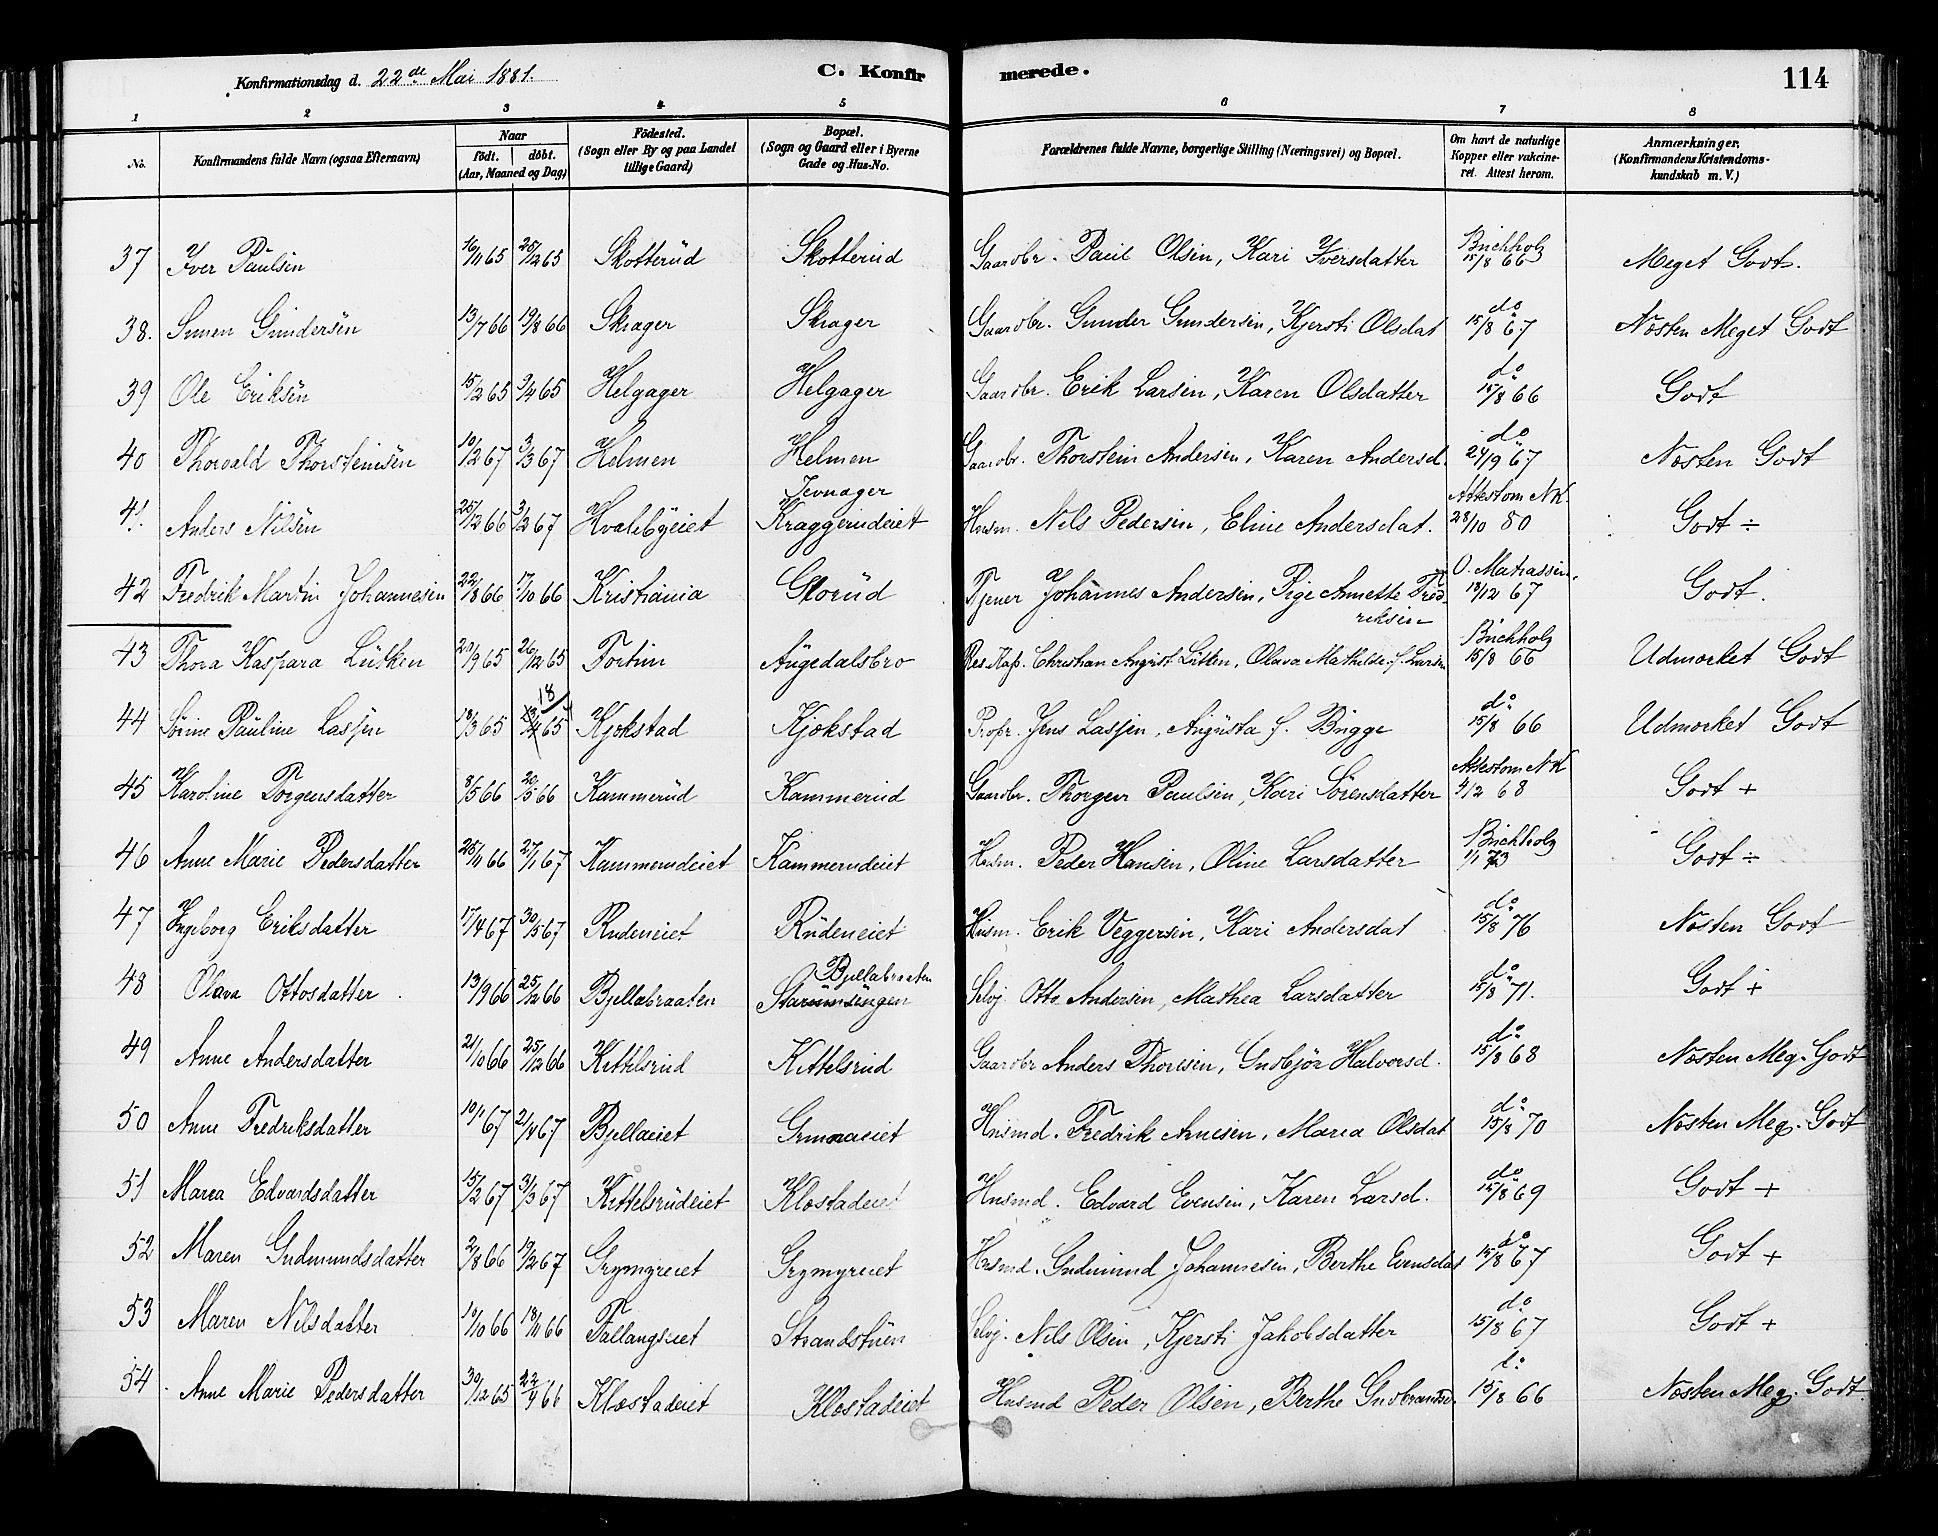 Konfirmationsdag d. 22de Mai 1881. C. Konfirmerede. 114
1 2 3 4 5 6 7 8
No. Konfirmandens fulde Navn (ogsaa Efternavn) Naar födt. döbt. (Aar, Maaned og Dag) Födested. (Sogn eller By og paa Landet tillige Gaard) Bopæl. (Sogn og Gaard eller i Byerne Gade og Hus-No. Forældrenes fulde Navne, borgerlige Stilling (Næringsvei) og Bopæl. Om havt de naturlige Kopper eller vakcineret. Attest herom. Anmærkninger. (Konfirmandens Kristendomskundskab m. V.)
37 Iver Paulsen 16/11 65 25/12 65 Skotterud Skotterud Gaardbr. Paul Olsen, Kari Iversdatter Buchholz 15/8 66 Meget Godt.
38. Simen Gundersen 13/7 66 19/8 66 Skrager Skrager Gaardbr. Gunder Gundersen, Kjersti Olsdat do 15/8 67 Næsten Meget Godt
39 Ole Eriksen 15/2 65 9/4 65 Helgager Helgager Gaardbr. Erik Larsen, Karen Olsdatter do 15/8 66 Godt
40 Thorvald Thorsteinsen 10/2 67 3/3 67 Helmen Helmen Gaardbr. Thorstein Andersen, Karen Andersd. do 24/9 67 Næsten Godt
41. Anders Nilsen 25/12 66 3/2 67 Hvalebyeiet Jevnager Kraggerudeiet Husm. Nels Pedersen, Eline Andersdat. Attest om NK 28/10 80 Godt ÷
42 Fredrik Martin Johannesen 22/8 66 17/10 66 Kristiania Glorud Tjener Johannes Andersen, Pige Annette Fredriksen O. Matiassen. 13/12 67 Godt.
43 Thora Kaspara Lütken 20/9 65 26/12 65 Fortun Augedalsbro Res. Kap. Christian August Lütken, Olava Mathilde f. Larsen Buchholz 15/8 66 Udmærket Godt
44 Sörine Pauline Lassen 18/3 65 18/4 65 Kjøkstad Kjøkstad Propr. Jens Lassen, Augusta f. Brigge do 15/8 66 Udmærket Godt
45 Karoline Torgersdatter 8/5 66 20/5 66 Kammerud Kammerud Gaardbr. Thorger Paulsen, Kari Sörensdatter Attest om NK 4/12 68 Godt +
46 Anne Marie Pedersdatter 28/11 66 27/1 67 Kammerudeiet Kammerudeiet Husm. Peder Hansen, Oline Larsdatter Buchholz 1/1 73 Godt ÷
47 Ingeborg Eriksdatter 17/4 67 30/5 67 Rudeneiet Rudeneiet Husm. Erik Veggersen, Kari Andersdat do 15/8 76 Næsten Godt
48 Olava Ottosdatter 13/9 66 25/12 66 Bjellabraaten Bjellabraaten Selvj. Otto Andersen, Mathea Larsdatter do 15/8 71. Godt +
49 Anne Andersdatter 21/10 66 25/12 66 Kittelsrud Kittelsrud Gaardbr Anders Thoresen, Gudbjör Halvorsd. do 15/8 68 Næsten Meg. Godt
50 Anne Fredriksdatter 10/1 67 2/4 67 Bjellaeiet Husmd. Fredrik Arnesen, Maria Olsdat do 15/8 70 Næsten Meg. Godt
51 Maria Edvardsdatter 15/2 67 31/3 67 Kittelsrudeiet Klostadeiet Husmd. Edvard Evensen, Karen Larsd. do 15/8 69 Godt +
52 Maren Gudmundsdatter 2/8 66 17/2 67 Grymyreiet Grymyreiet Husmd. Gudmund Johannesen, Berthe Evensdat do 15/8 67 Godt +
53 Maren Nilsdatter 10/10 66 18/11 66 Fallangseiet Strandstuen Selvj. Nils Olsen, Kjersti Jakobsdatter do 15/8 67 Godt +
54. Anne Marie Pedersdatter 30/12 65 22/4 66 Klostadeiet Klostadeiet Husmd Peder Olsen, Berthe Gudbrandsd. do 15/8 66 Næsten Meg. Godt